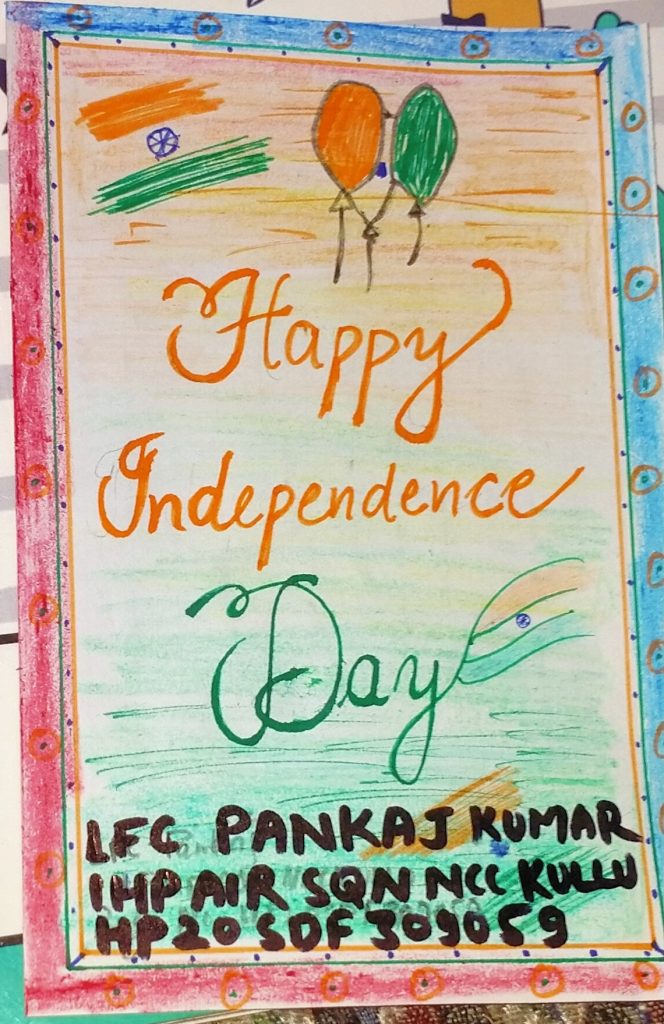 Happy
Independence
Day
LFC PANKAJ KUMAR
1HP AIR SQN NCC KULLU
HP20SDF309059